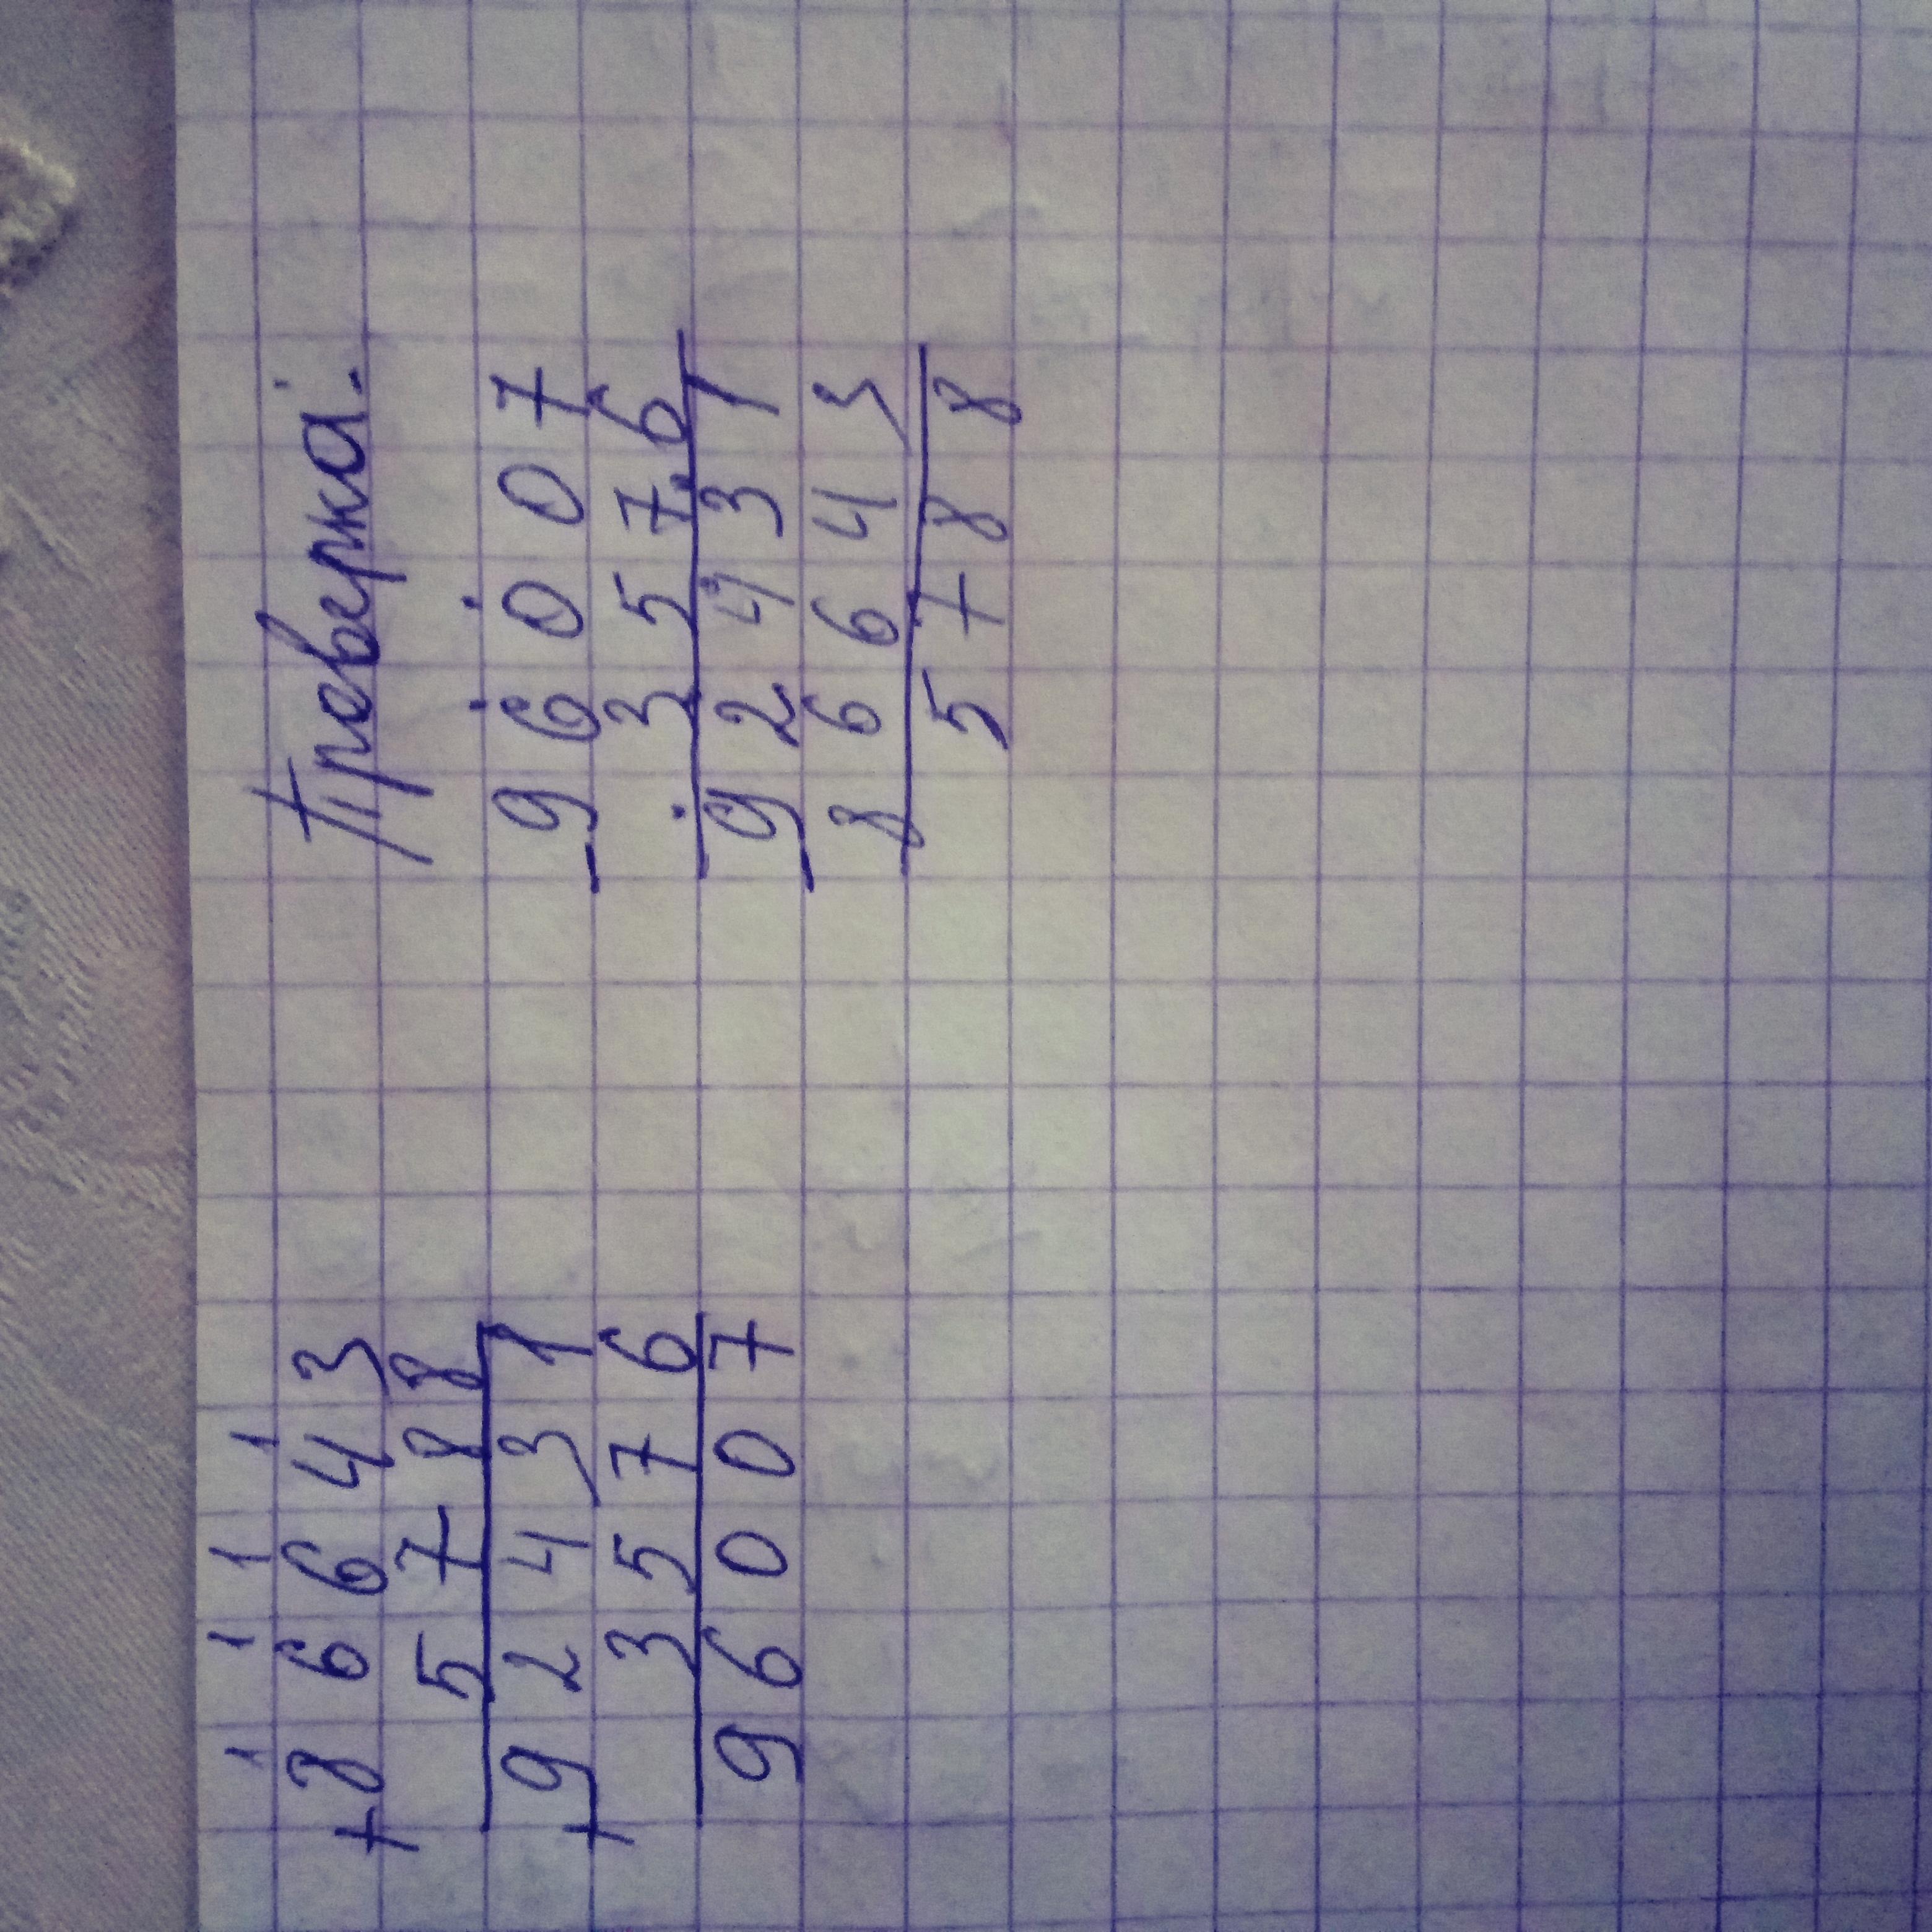 1 1 1 1
+ 8 6 6 4 3
5 7 8 8
9 2 4 3 1
+ 3 5 7 6
9 6 0 0 7
Проверка.
_ 9 6 0 0 7
3 5 7 6
_ 9 2 4 3 1
8 6 6 4 3
5 7 8 8